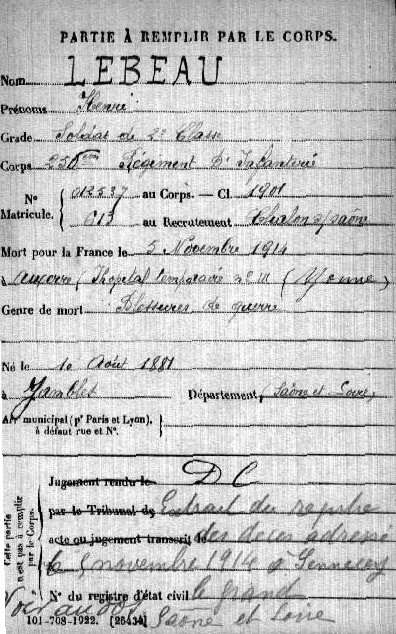 PARTIE À REMPLIR PAR LE CORPS.
Nom LEBEAU
Prénoms Henri
Grade Soldat de 2e Classe
Corps Régiment d'Infanterie
No 012537 au Corps. — Cl 1901
Matricule. 613 au Recrutement Chalon s/saône
Mort pour la France le 5 Novembre 1914
à Auxerre (hôpital temporaire no 10 (Yonne)
Genre de mort Blessures de guerre
Né le 10 Août 1881
à Jambles Département, Saône et Loire
Arr municipal (pr Paris et Lyon),
à défaut rue et No.
Cette partie
n'est pas à remplir
par le Corps.
Jugement rendu le D C
par le Tribunal de Extrait du registre
acte ou jugement transcrit le des décès adressé
le 5 novembre 1914 à Sennecey
No du registre d'état civil le grand
Voir au dos Saône et Loire
101-708-1922. [26434]